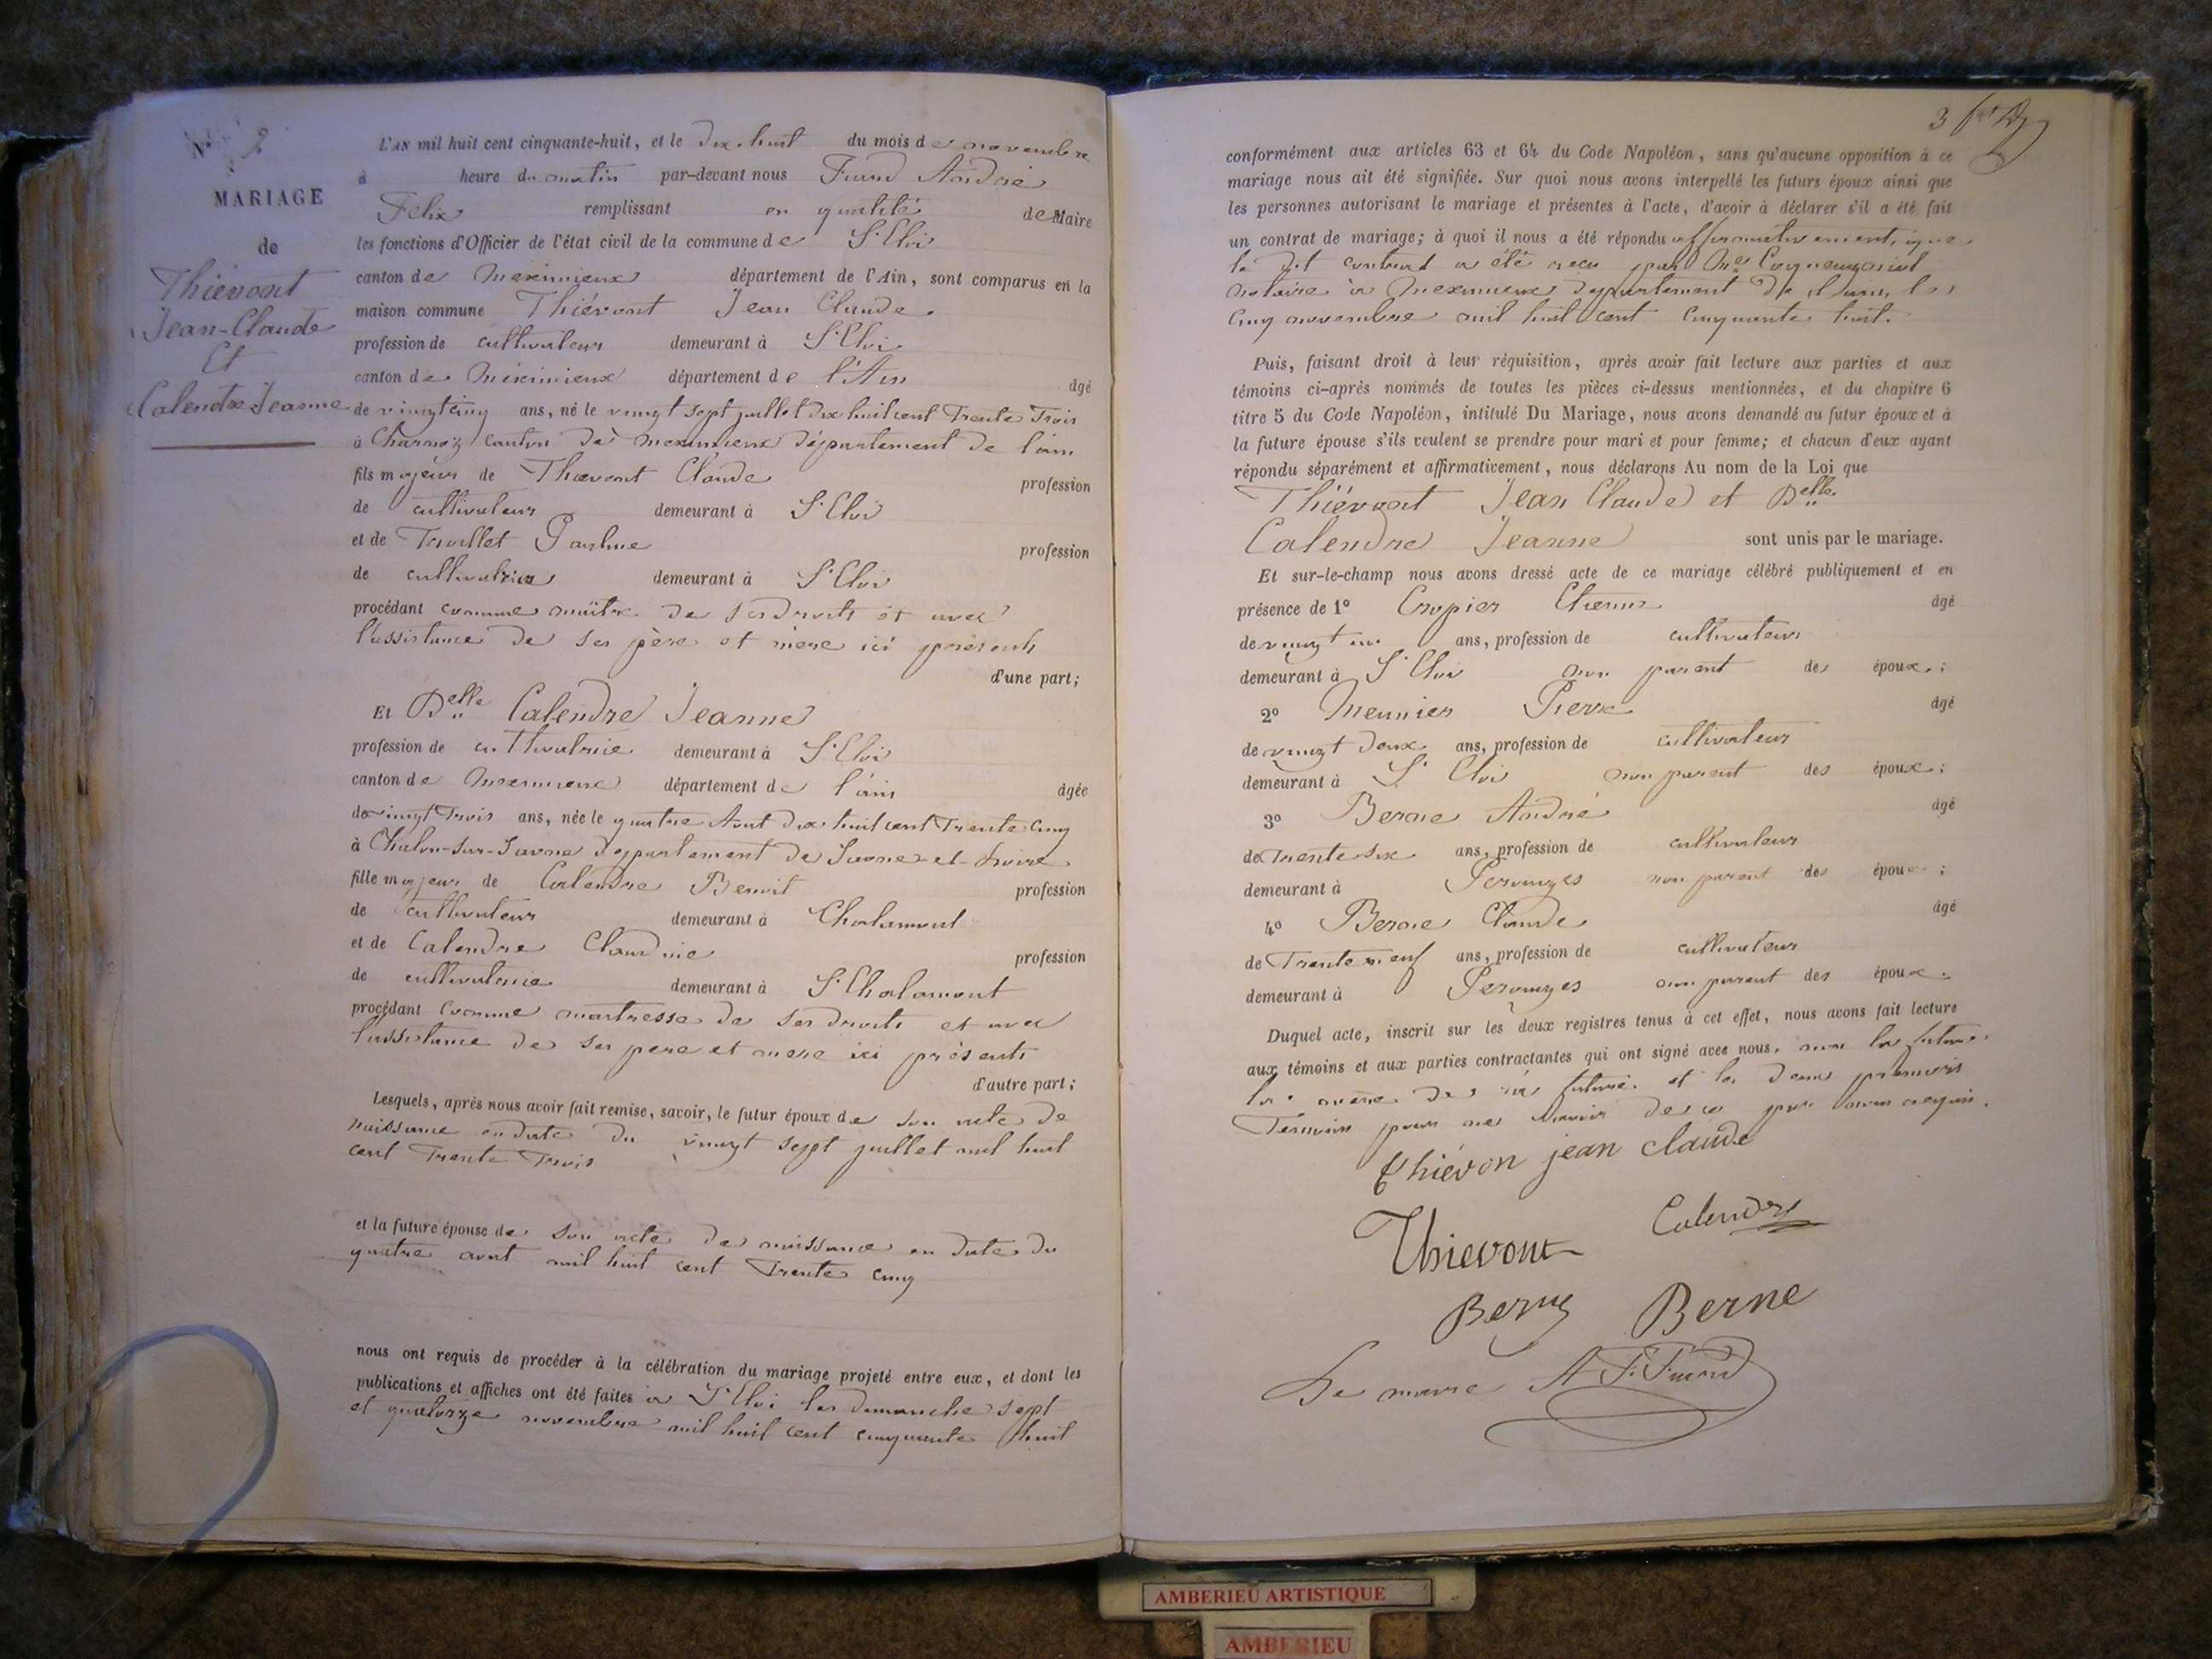 N° 2
MARIAGE
de
Thiévont
Jean-Claude
Et
Calendre Jeanne
L'AN mil huit cent cinquante-huit, et le dix-huit du mois de novembre
à heure du matin par-devant nous André
Felix remplissant en qualité de Maire
les fonctions d'Officier de l'état civil de la commune de St Eloi
canton de Meximieux département de l'Ain, sont comparus en la
maison commune Thiévont Jean Claude
profession de cultivateur demeurant à St Eloi
canton de Meximieux département de l'Ain âgé
de vingt cinq ans, né le vingt sept juillet dix huit cent Trente Trois
à Charnoz canton de meximieux département de l'ain
fils majeur de Thievont Claude profession
de cultivateur demeurant à St Eloi
et de profession
de cultivatrice demeurant à St Eloi
procédant comme maître de ses droits et avec
l'assistance de ses père et mère ici présents
d'une part;
Et Delle Calendre Jeanne
profession de cultivatrice demeurant à St Eloi
canton de Meximieux département de l'ain âgée
de vingt Trois ans, née le quatre Aout dix huit cent Trente cinq
à Chalon-sur-Saone département de Saone-et-Loire
fille majeur de Calendre Benoit profession
de cultivateur demeurant à Chalamont
et de Calendre Claudine profession
de cultivatrice demeurant à St Chalamont
procédant comme maitresse de ses droits et avec
l'assistance de ses pere et mere ici présents
d'autre part;
Lesquels, après nous avoir fait remise, savoir, le futur époux de son acte de
naissance en date du vingt sept juillet mil huit
cent Trente Trois
et la future épouse de son acte de naissance en date du
quatre aout mil huit cent Trente cinq
nous ont requis de procéder à la célébration du mariage projeté entre eux, et dont les
publications et affiches ont été faites à St Eloi les dimanche sept
et quatorze novembre mil huit cent cinquante huit
3
conformément aux articles 63 et 64 du Code Napoléon, sans qu'aucune opposition à ce
mariage nous ait été signifiée. Sur quoi nous avons interpellé les futurs époux ainsi que
les personnes autorisant le mariage et présentes à l'acte, d'avoir à déclarer s'il a été fait
un contrat de mariage; à quoi il nous a été répondu affirmativement, que
le dit contrat a été reçu par Me
notaire à Meximieux département de l'ain, le
cinq novembre mil huit cent cinquante huit.
Puis, faisant droit à leur réquisition, après avoir fait lecture aux parties et aux
témoins ci-après nommés de toutes les pièces ci-dessus mentionnées, et du chapitre 6
titre 5 du Code Napoléon, intitulé Du Mariage, nous avons demandé au futur époux et à
la future épouse s'ils veulent se prendre pour mari et pour femme; et chacun d'eux ayant
répondu séparément et affirmativement, nous déclarons Au nom de la Loi que
Thiévont Jean Claude et Delle
Calendre Jeanne sont unis par le mariage.
Et sur-le-champ nous avons dressé acte de ce mariage célébré publiquement et en
présence de 1° âgé
de vingt ans, profession de cultivateur
demeurant à St Eloi non parent des époux;
2° Meunier Pierre âgé
de vingt deux ans, profession de cultivateur
demeurant à St Eloi non parent des époux;
3° Berne André âgé
de Trente six ans, profession de cultivateur
demeurant à Perouges non parent des époux;
4° Berne Claude âgé
de Trente neuf ans, profession de cultivateur
demeurant à Perouges non parent des époux.
Duquel acte, inscrit sur les deux registres tenus à cet effet, nous avons fait lecture
aux témoins et aux parties contractantes qui ont signé avec nous. non la future
la mère de la future et les deux premiers
Temoins pour ne savoir de ce par nous requis.
Thiévon jean claude
Thievont Calendre
Berne Berne
Le maire A F.
AMBERIEU ARTISTIQUE
AMBERIEU